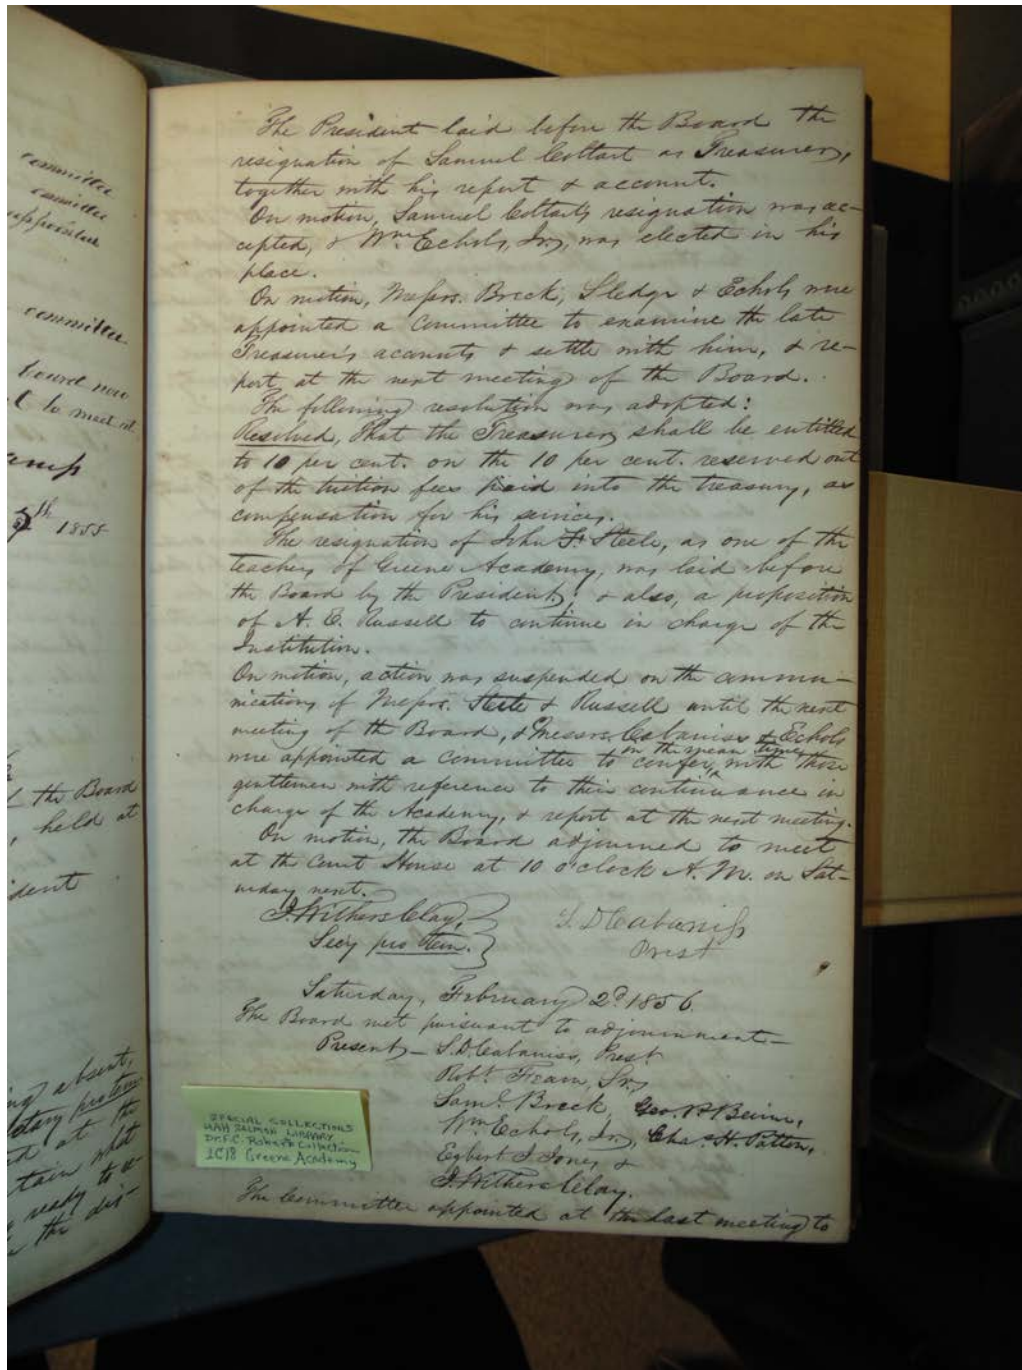 committee
committee
appointed
committee
board now
to meet at
7th 1855
f the Board
, held at
ident
ng absent,
etary pro tem
d at the
tain what
ready to
the dis-
The President laid before the Board the
resignation of Samuel Coltart as Treasurer,
together with his report & account.
On motion, Samuel Coltart's resignation was ac-
cepted, & Wm. Echols, Jr., was elected in his
place.
On motion, Messrs. Breck, Sledge & Echols were
appointed a committee to examine the late
Treasurer's accounts & settle with him, & re-
port at the next meeting of the Board.
The following resolution was adopted:
Resolved, That the Treasurer shall be entitled
to 10 per cent. on the 10 per cent. reserved out
of the tuition fees paid into the treasury, as
compensation for his services.
The resignation of John F. Steele, as one of the
teachers of Greene Academy, was laid before
the Board by the President; & also, a proposition
of A. E. Russell to continue in charge of the
Institution.
On motion, action was suspended on the commu-
nications of Messrs. Steele & Russell until the next
meeting of the Board, & Messrs. Cabaniss & Echols
were appointed a committee to confer, in the mean time, with those
gentlemen with reference to their continuance in
charge of the Academy, & report at the next meeting.
On motion, the Board adjourned to meet
at the Court House at 10 o'clock A. M. on Sat-
urday next.
J. Withers Clay, S. D. Cabaniss
Sec'y pro tem. Prest
Saturday, February 2d 1856.
The Board met pursuant to adjournment—
Present— S. D. Cabaniss, Prest
Robt. Fearn, Sr.,
Saml. Breck, Geo. P. Beirne,
Wm. Echols, Jr., Chas. H. Patton,
Egbert J. Jones, &
J. Withers Clay.
The Committee appointed at the last meeting to
SPECIAL COLLECTIONS
UAH SALMON LIBRARY
Dr. F.C. Roberts Collection
2C18 Greene Academy